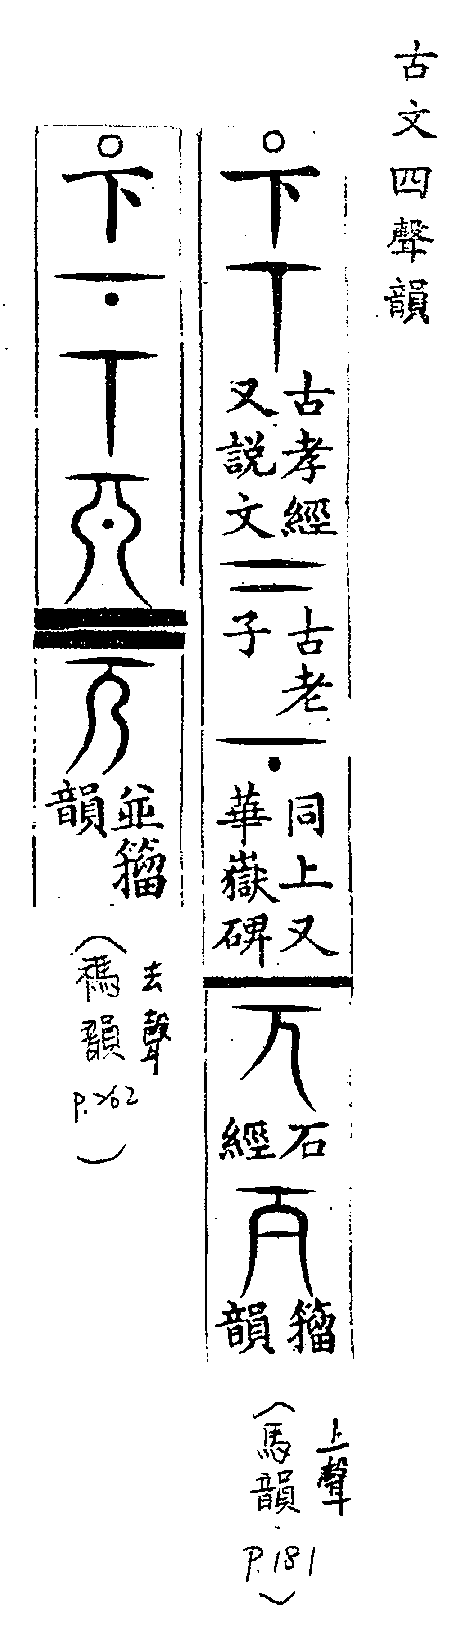 古文四聲韻
下
古孝經
又說文
古老
子
同上又
華嶽碑
石
經
籀
韻
上聲
(馬韻
P.181)
下
並籀
韻
去聲
(禡韻
P.262
)